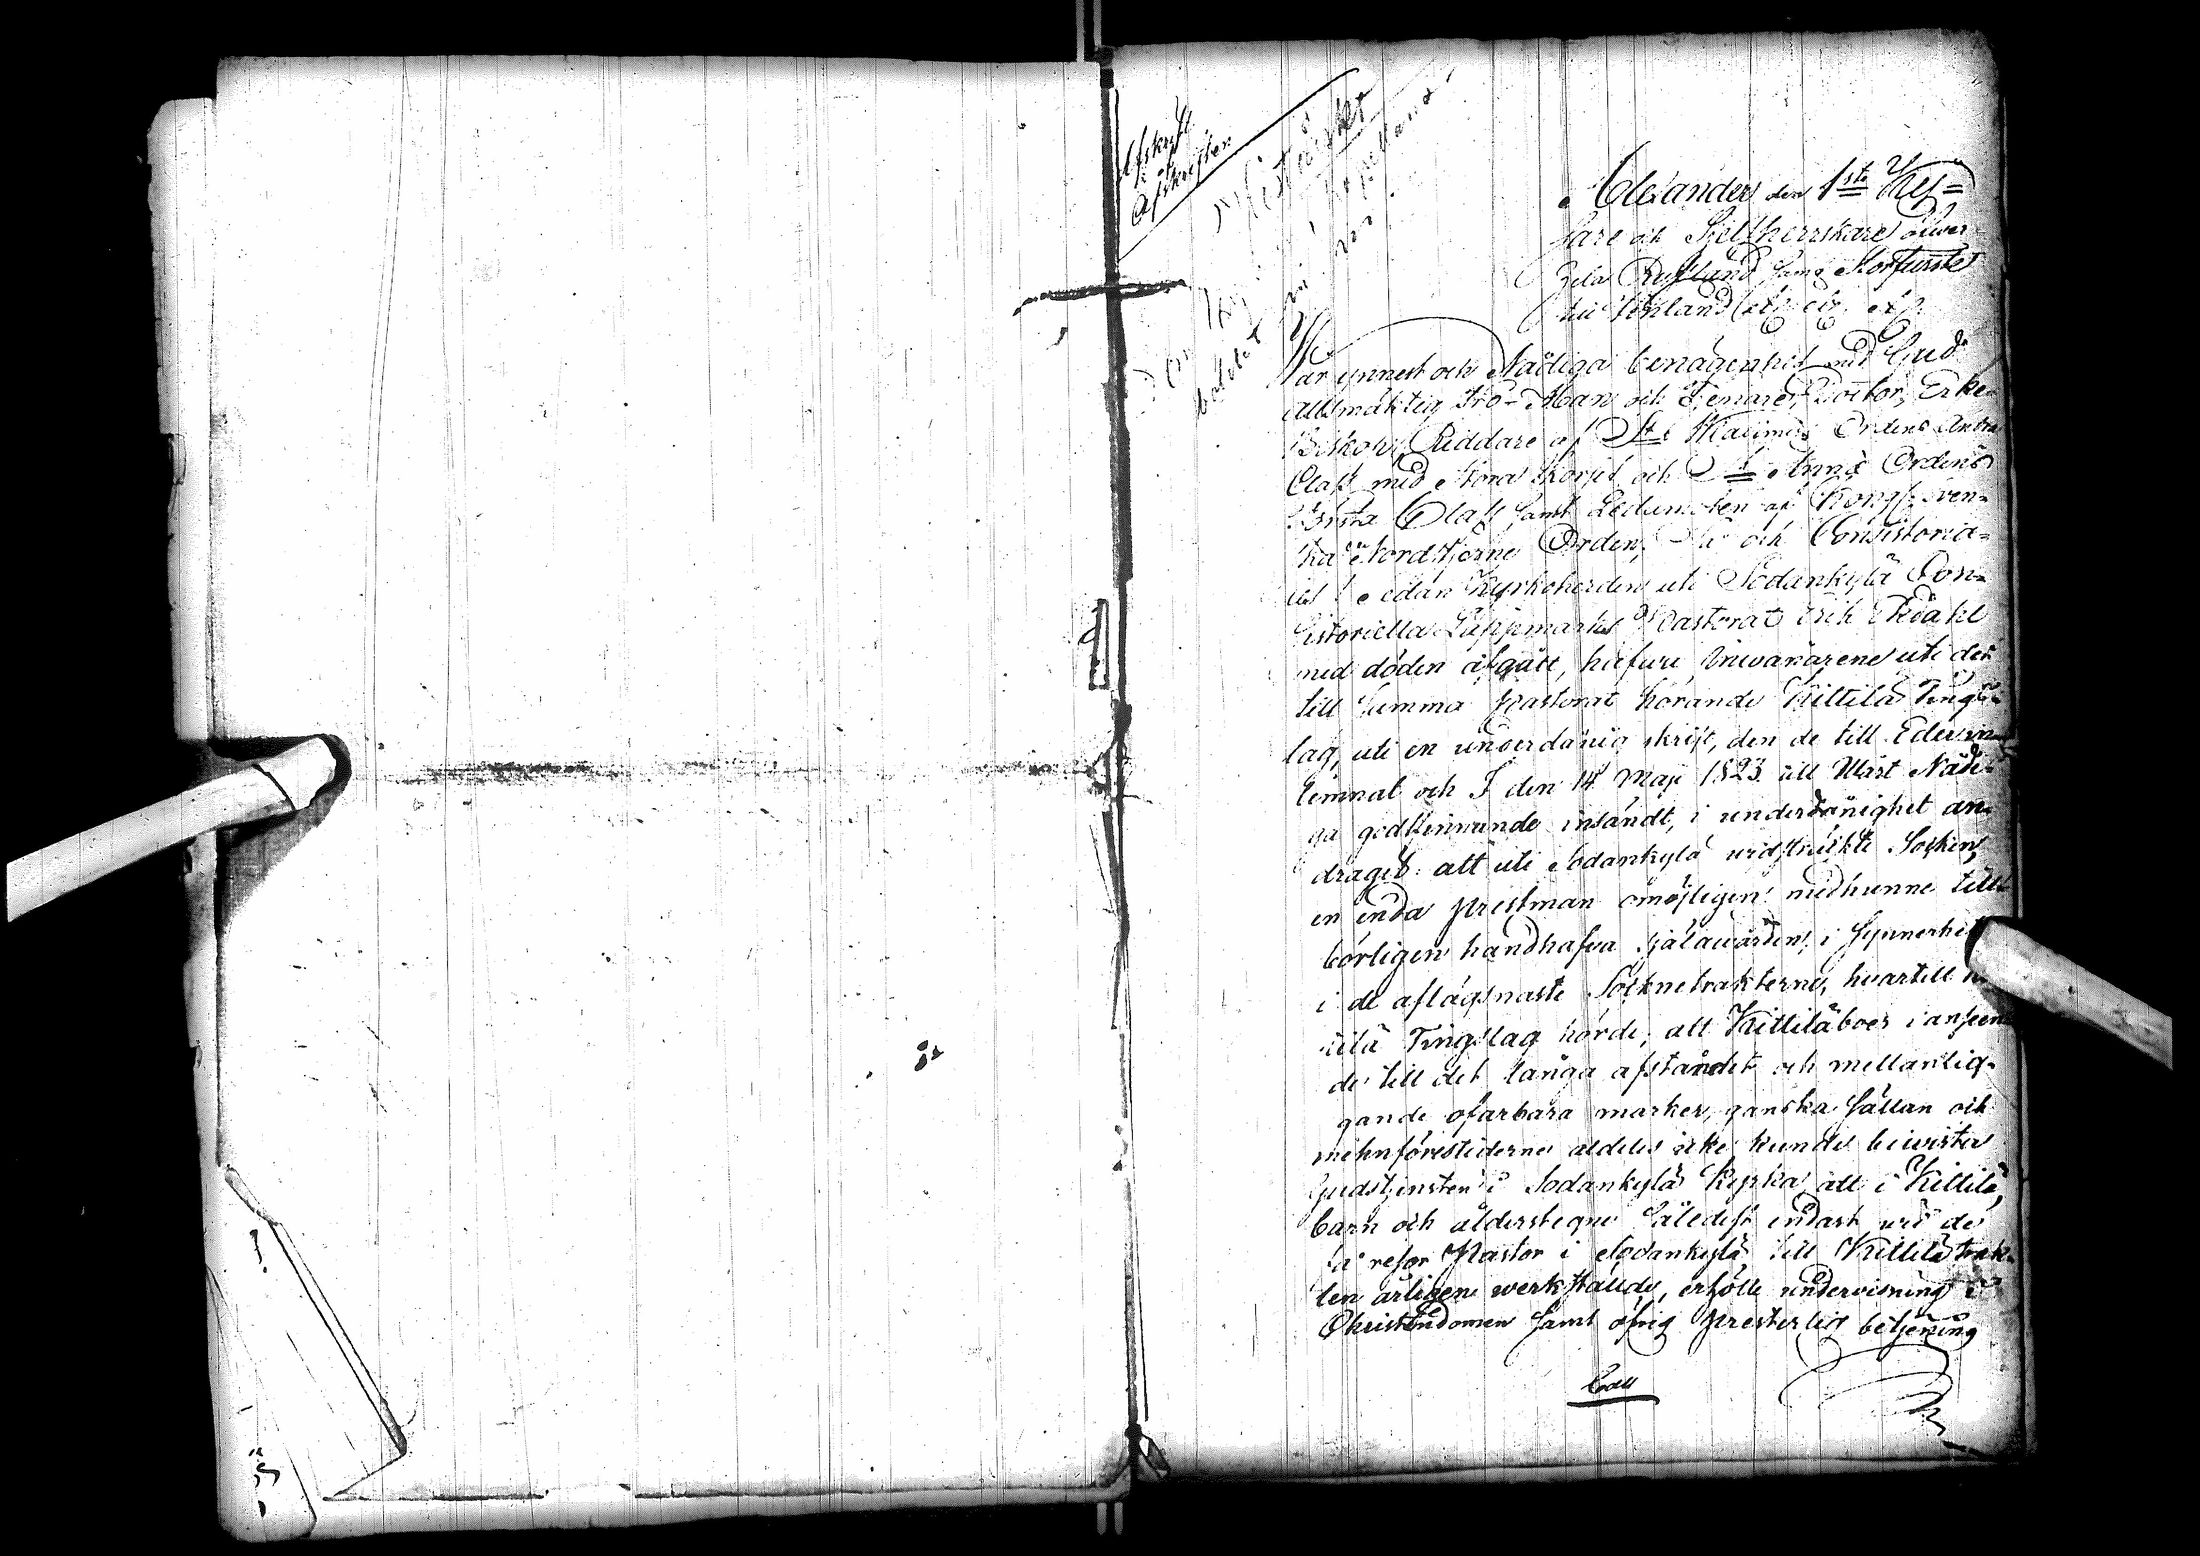 Afskrift
af
Afskriften
Alexander den 1ste Kej=
sare och Sjelfherrskare öfwer
hela Ryssland samt Storfurste
till Finland etc. etc. etc.
Wår ynnest och Nådiga benägenhet med Gud
Allsmäktig Tro-Man och Tjenare, Doctor, Erke-
Biskop, Riddare af St Wladimirs Ordens Andra
Class med Stora Korset och St Annæ Ordens
Första Class samt Ledamoten af Kongl. Sven=
ska Nordstjerne Orden, Så och Consistoria=
les! Sedan Kyrkoherden uti Sodankylä Con=
sistoriella Lappmarks Pastorat Erik
med döden afgått, hafwa Inwånarene uti det
till samma Pastorat hörande Kittilä Tings=
lag, uti en underdånig skrift, den de till Eder in=
lemnat och I den 14 Maji 1823 till Wårt Nådi=
ga godkännande insändt, i underdånighet an=
dragit: att uti Sodankylä widsträckte Socken,
en enda prestman omöjligen medhunne till=
börligen handhafva själawården, i synnerhet
i de aflägsnaste Socknetrakterne, hvartill
tilä Tingslag hörde; att Kittiläboer i anseen=
de till det långa afståndet och mellanlig=
gande ofarbara marker, ganska sällan och
menförestiderne aldeles icke kunde bewista
Gudstjensten i Sodankylä Kyrka, att i Kittilä,
barn och ålderstegne således endast wid de
få resor Pastor i Sodankylä till Kittilä trak=
ten årligen werkställde, erhölle underwisning i
Christendomen samt öfrig presterlig betjening